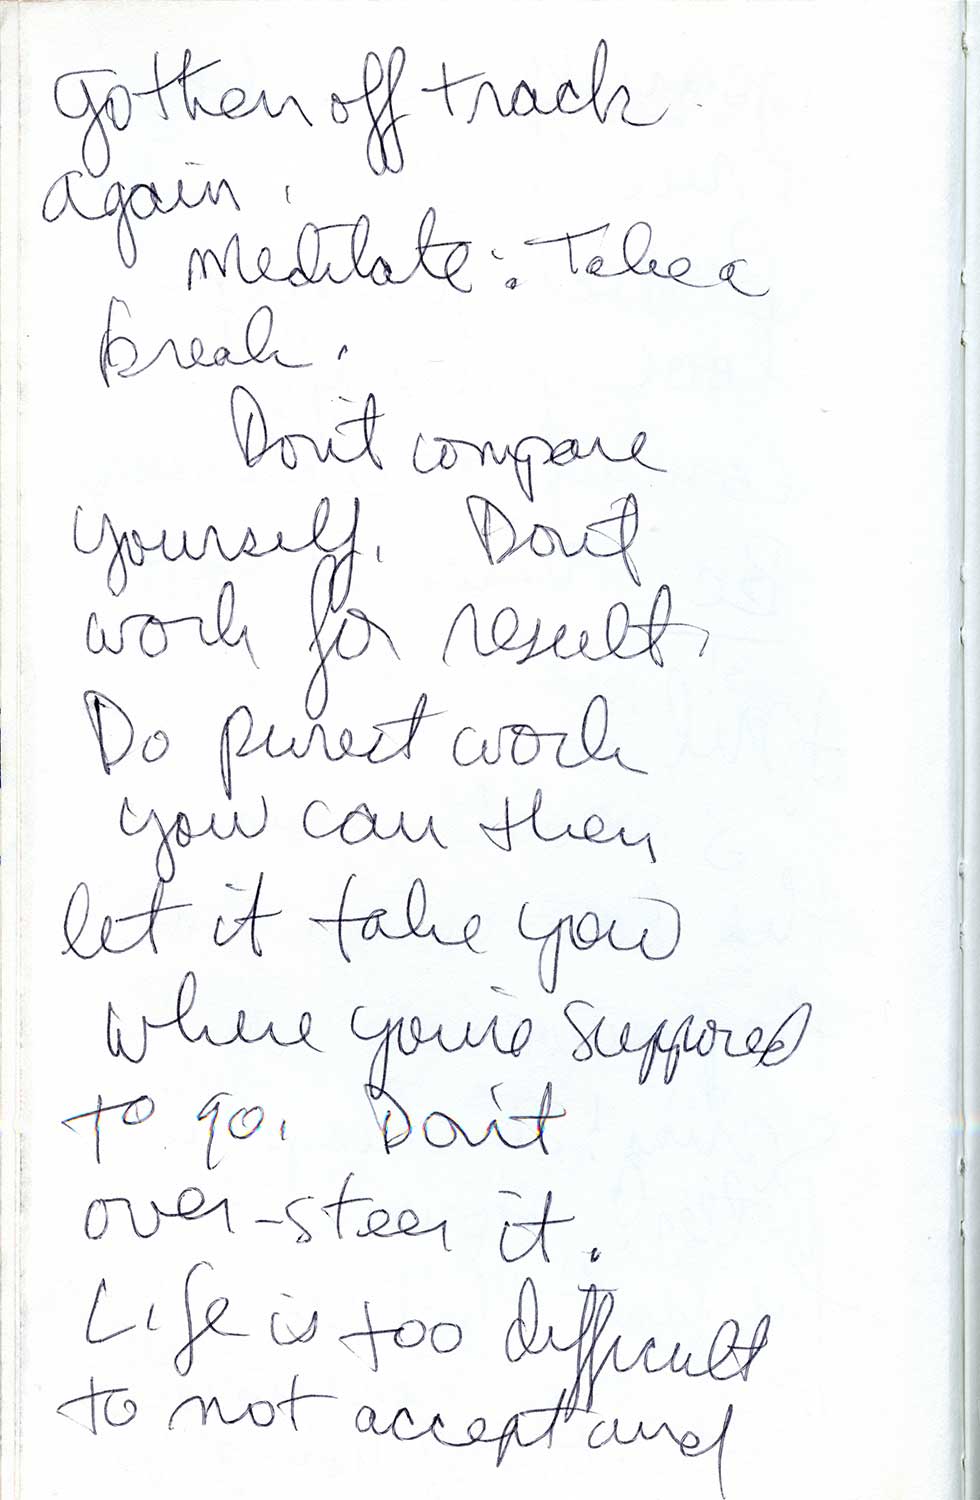 gotten off track
again.
Meditate: Take a
break.
Don't compare
yourself. Don't
work for result.
Do purest work
you can then
let it take you
where you're supposed
to go. Don't
over-steer it.
Life is too difficult
to not accept and